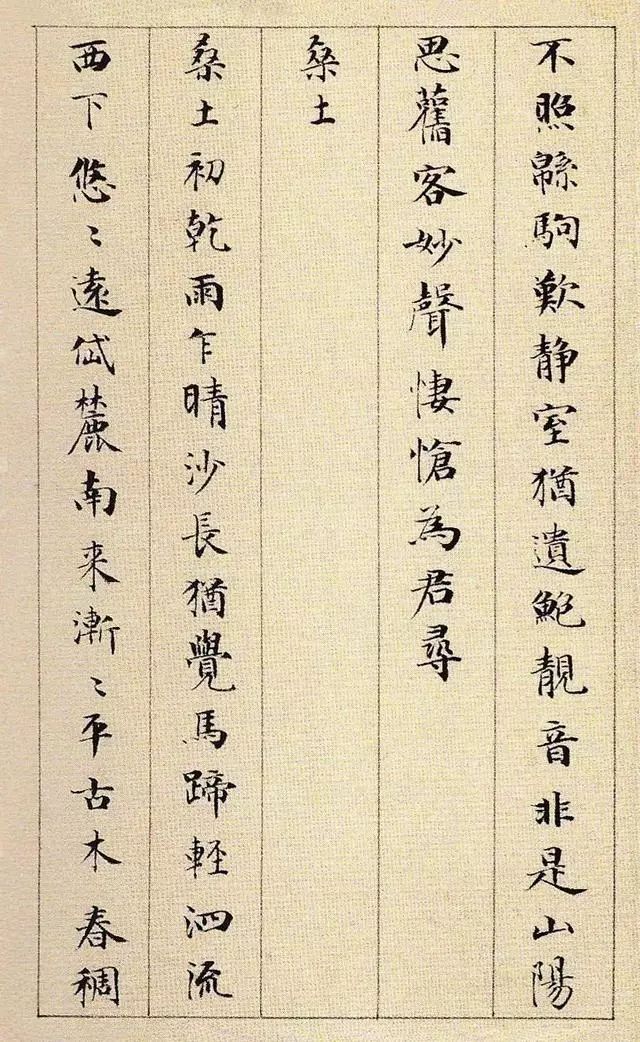 不照緜駒歎静室猶遺鮑靚音非是山陽
思舊客妙聲悽愴為君尋
桑土
桑土初乾雨乍晴沙長猶覺馬蹄輕泗流
西下悠〻遠岱麓南来漸〻平古木春稠